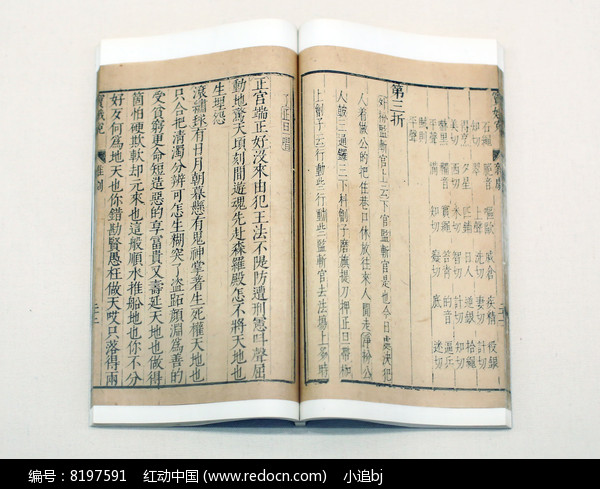 竇娥冤
雜劇
第三折
外扮監斬官上云下官監斬官是也今日處決犯
人着做公的把住巷口休放往來人閒走淨扮公
人鼓三通鑼三下科劊子磨旗提刀押正旦帶枷
上劊子云行動些行動些監斬官去法場上多時
了正旦唱
正宮端正好沒來由犯王法不隄防遭刑憲叫聲屈
動地驚天頃刻間遊魂先赴森羅殿怎不將天地也
生埋怨
滾繡毬有日月朝暮懸有鬼神掌著生死權天地也
只合把清濁分辨可怎生糊突了盜跖顏淵為善的
受貧窮更命短造惡的享富貴又壽延天地也做得
箇怕硬欺軟却元來也這般順水推船地也你不分
好歹何為地天也你錯勘賢愚枉做天哎只落得兩
竇娥冤
雜劇
编号：8197591 红动中国 (www.redocn.com) 小追bj